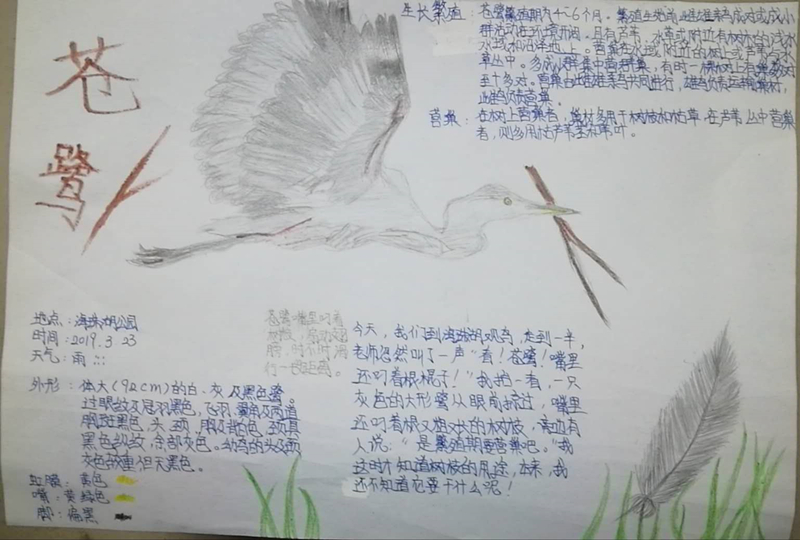 苍鹭
生长繁殖：苍鹭繁殖期为4~6个月。繁殖生境或
群活动在环境开阔、且有芦苇、水草或附近有树木的浅水
水域和沼泽地上。营巢在水域附近的树上或芦苇与水
草丛中。多成小群集中营群巢，有时一棵树上有巢数对
至十多对。营巢由雌雄亲鸟共同进行，雄鸟负责运输巢材，
雌鸟负责营巢。
营巢：在树上营巢者，巢材多用干树枝和枯草，在芦苇丛中营巢
者，则多用枯芦苇茎和苇叶。
地点：海珠湖公园
时间：2019.3 23
天气：雨
外形：体大(92cm)的白、灰及黑色鹭。
过眼纹及冠羽黑色，飞羽、翼角及两道
胸斑黑色，头、颈、胸及背白色，颈具
黑色纵纹，余部灰色。幼鸟的头及颈
灰色较重，但无黑色。
虹膜：黄色
嘴：黄绿色
脚：偏黑
苍鹭嘴里叼着
今天，我们到海珠湖观鸟，走到一半，
老师忽然叫了一声“看！苍鹭！嘴里
还叼着根棍子！”我抬一看，一只
灰色的大形鹭从眼前掠过，嘴里
还叼着根又粗又长的树枝，黄血有
人说：“是繁殖期要营巢吧。”我
这时才知道树枝的用途，本来，我
还不知道它要干什么呢！